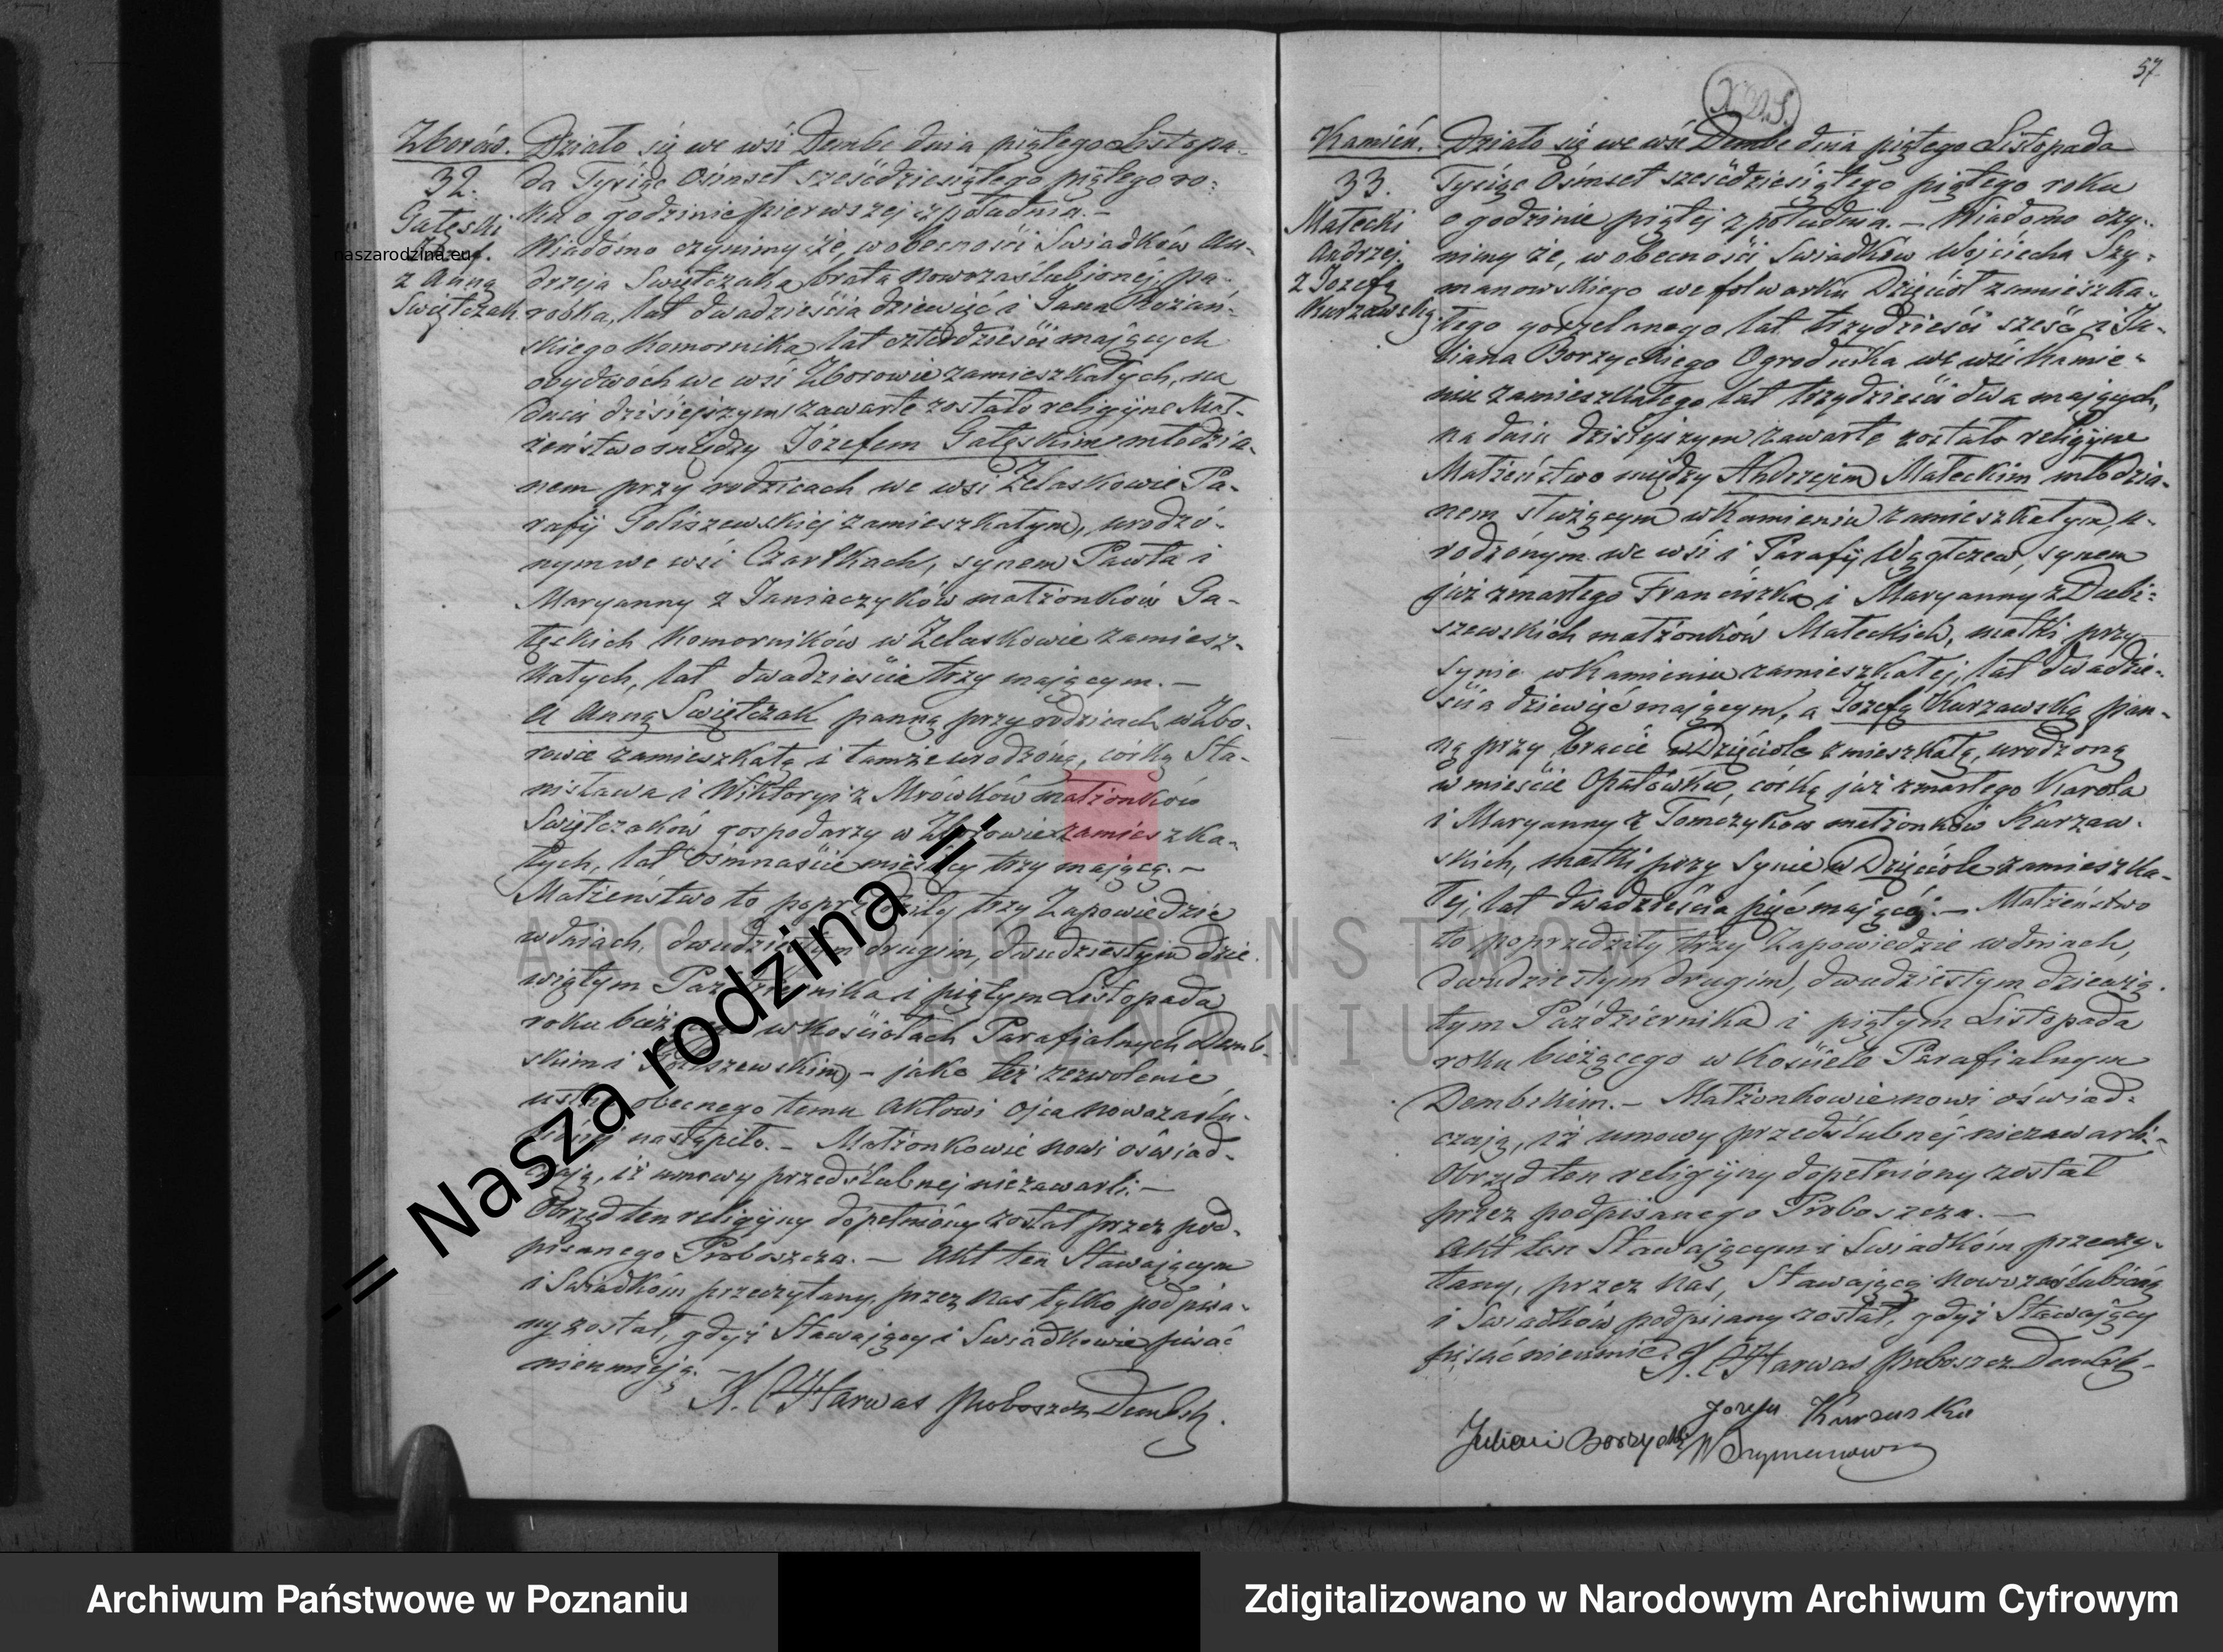 Zborów.
32.
Gałęski
Józef.
z Anną
Świętczak
Działo się we wsi Dembe dnia piątego Listopa-
da Tysiąc Ośmset sześćdziesiątego piątego ro-
ku o godzinie pierwszej z południa. –
Wiadomo czynimy że, w obecności Świadków An-
drzeja Świętczaka brata nowozaślubionej, pa-
robka, lat dwadzieścia dziewięć i Jana Roźań-
skiego Komornika lat czterdzieści mających
obydwóch we wsi Zborowie zamieszkałych, na
dniu dzisiejszym zawarte zostało religijne Mał-
żeństwo między Józefem Gałęskim młodzia-
nem przy rodzicach we wsi Żelaskowie Pa-
rafij Goliszewskiej zamieszkałym, urodzo-
nym we wsi Czartkach, synem Pawła i
Maryanny z Janiaczyków małżonków Ga-
łęckich Komorników w Żelaskowie zamiesz-
kałych, lat dwadzieście trzy mającym. –
a Anną Świętczak panną przy rodzicach w Zbo-
rowie zamieszkałą i tamże urodzoną, córką Sta-
nisława i Wiktoryi z Mrówków małżonków
Świętczaków gospodarzy w Zborowie zamieszka-
łych, lat ośmnaście miesięcy trzy mającą. –
Małżeństwo to poprzedziły trzy Zapowiedzie
w dniach, dwudziestym drugim, dwudziestym dzie-
wiątym Października i piątym Listopada
roku bieżącego w Kościołach Parafialnych Demb-
skim i Goliszewskim, – jako też zezwolenie
ustne obecnego temu Aktowi ojca nowozaślu-
bionej nastąpiło. – Małżonkowie nowi oświad-
czają, iż umowy przedślubnej niezawarli. –
Obrzęd ten religijny dopełniony został przez pod-
pisanego Proboszcza. – Akt ten Stawającym
i Świadkom przeczytany, przez nas tylko podpisa-
ny został, gdyż Stawający i Świadkowie pisać
nieumieją. –
X. Harwas Proboszcz Dembsk.
57
Kamień.
33.
Małecki
Andrzej.
z Józefą
Kurzawską
Działo się we wsi Dembe dnia piątego Listopada
Tysiąc Ośmset sześćdziesiątego piątego roku
o godzinie piątej z południa. – Wiadomo czy-
nimy że, w obecności Świadków Wojciecha Szy-
manowskiego we folwarku Dzięcioł zamieszka-
łego gorzelanego lat trzydzieści sześć i Ju-
liana Borzyckiego Ogrodnika we wsi Kamie-
niu zamieszkałego lat trzydzieści dwa mających,
na dniu dzisiejszym zawarte zostało religijne
Małżeństwo między Andrzejem Małeckim młodzia-
nem służącym w Kamieniu zamieszkałym, u-
rodzonym we wsi i Parafij Wągłczew, synem
już zmarłego Franciszka i Maryanny z Dubi-
szewskich małżonków Małeckich, matki przy
synie w Kamieniu zamieszkałej, lat dwadzie-
ścia dziewięć mającym, a Józefą Kurzawską pan-
ną przy bracie w Dzięciole zmieszkałą, urodzoną
w mieście Opatówku, córką już zmarłego Karola
i Maryanny z Tomczyków małżonków Kurzaw-
skich, matki przy synie w Dzięciole zamieszka-
łej, lat dwadzieścia pięć mającą. – Małżeństwo
to poprzedziły trzy Zapowiedzie w dniach,
dwudziestym drugim, dwudziestym dziewią-
tym Października i piątym Listopada
roku bieżącego w Kościele Parafialnym
Dembskim. – Małżonkowie nowi oświad-
czają, iż umowy przedślubnej niezawarli. –
Obrzęd ten religijny dopełniony został
przez podpisanego Proboszcza. –
Akt ten Stawającym i Świadkom przeczy-
tany, przez nas, Stawającą nowozaślubioną
i Świadków podpisany został, gdyż Stawający
pisać nieumie. X. Harwas Proboszcz Dembsk.
Józefa Kurzaska
Julian Borzycki W Szymanows
naszarodzina.eu
-= Nasza rodzina =-
ARCHIWUM PAŃSTWOWE
W POZNANIU
Archiwum Państwowe w Poznaniu
Zdigitalizowano w Narodowym Archiwum Cyfrowym